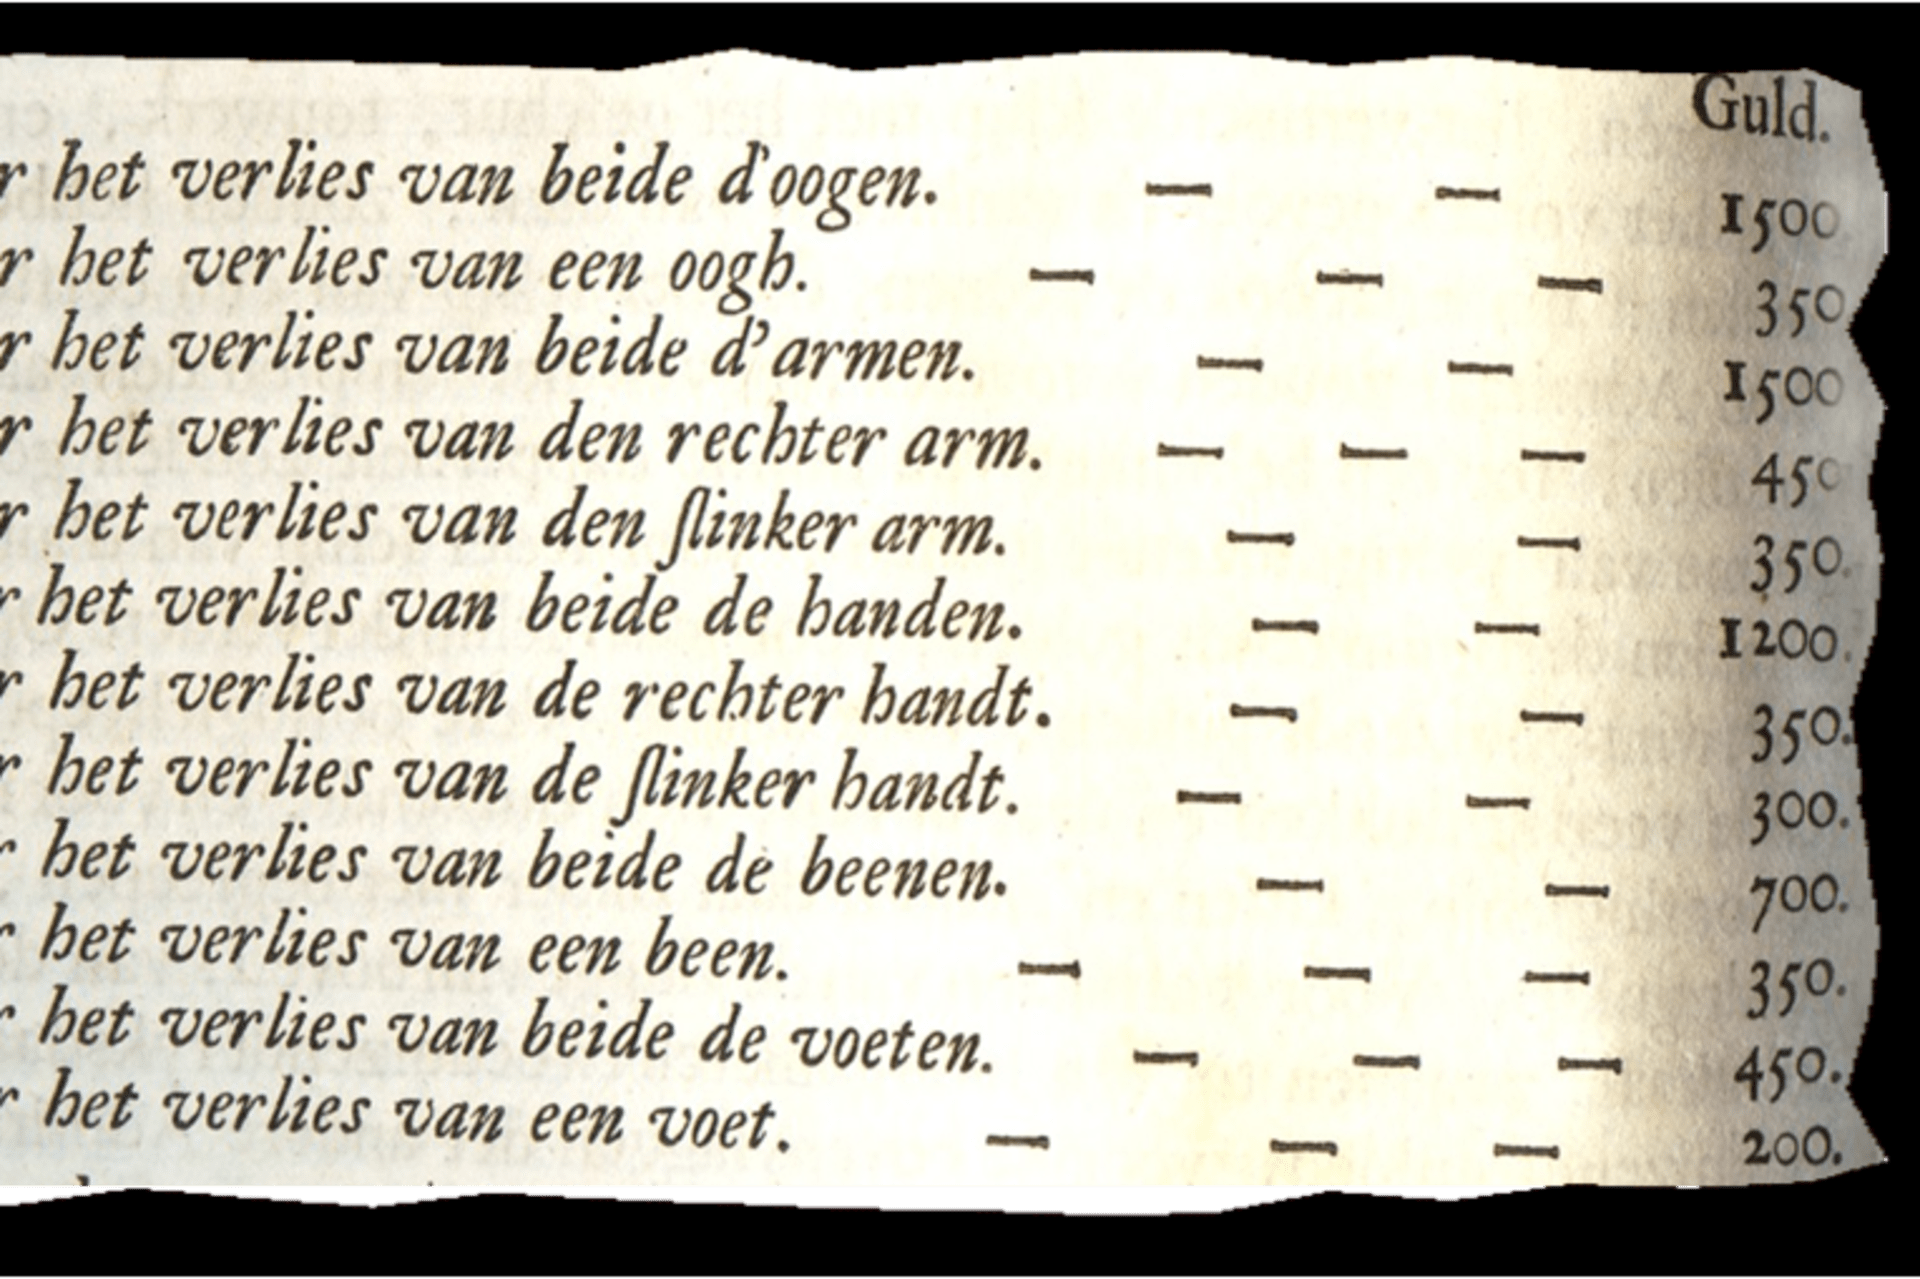 Guld.
r het verlies van beide d'oogen. — — 1500
r het verlies van een oogh. — — — 350
r het verlies van beide d'armen. — — 1500
r het verlies van den rechter arm. — — — 450
r het verlies van den ſlinker arm. — — 350.
r het verlies van beide de handen. — — 1200.
r het verlies van de rechter handt. — — 350.
r het verlies van de ſlinker handt. — — 300.
r het verlies van beide de beenen. — — 700.
r het verlies van een been. — — — 350.
r het verlies van beide de voeten. — — — 450.
r het verlies van een voet. — — — 200.